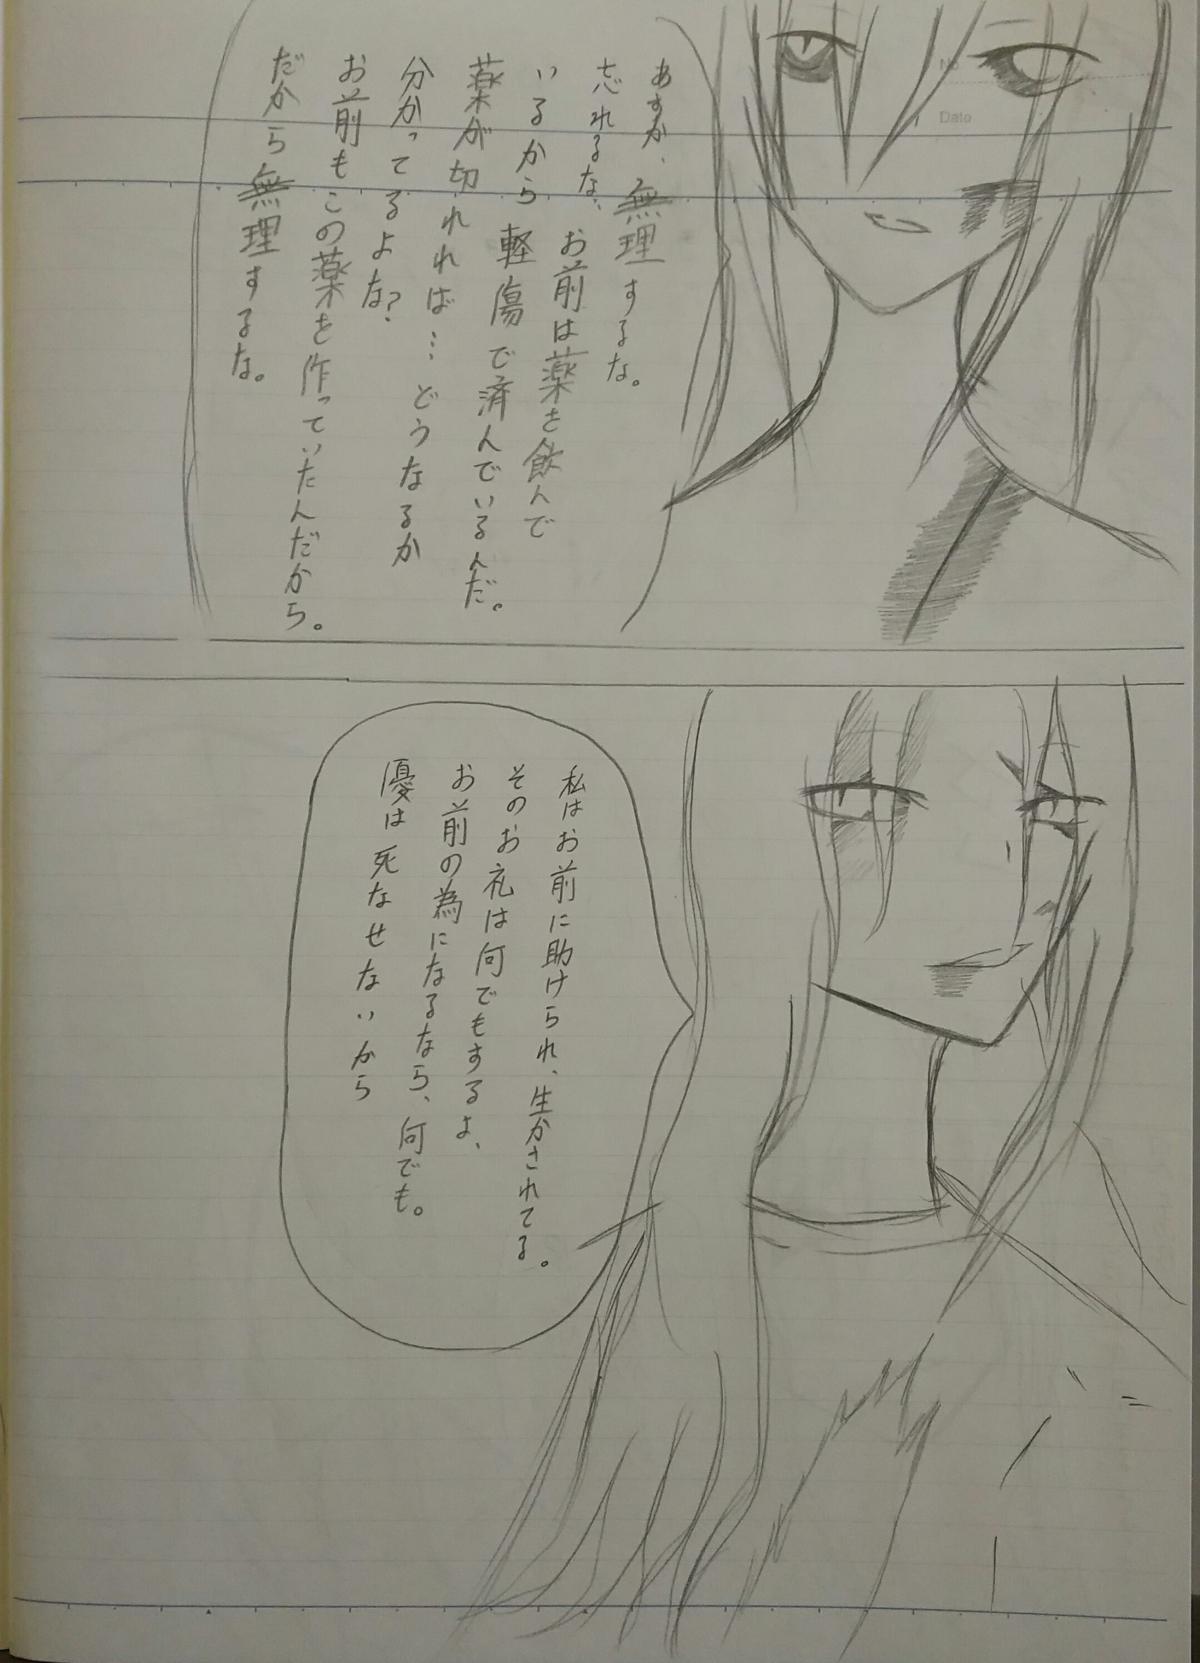 あすか、無理するな。
忘れるな、お前は薬を飲んで
いるから軽傷で済んでいるんだ。
薬が切れれば…どうなるか
分かってるよな?
お前もこの薬を作っていたんだから。
だから無理するな。
私はお前に助けられ、生かされてる。
そのお礼は何でもするよ、
お前の為になるなら、何でも。
優は死なせないから
No.
Date